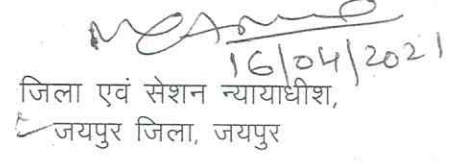 16/04/2021
जिला एवं सेशन न्यायाधीश,
जयपुर जिला, जयपुर